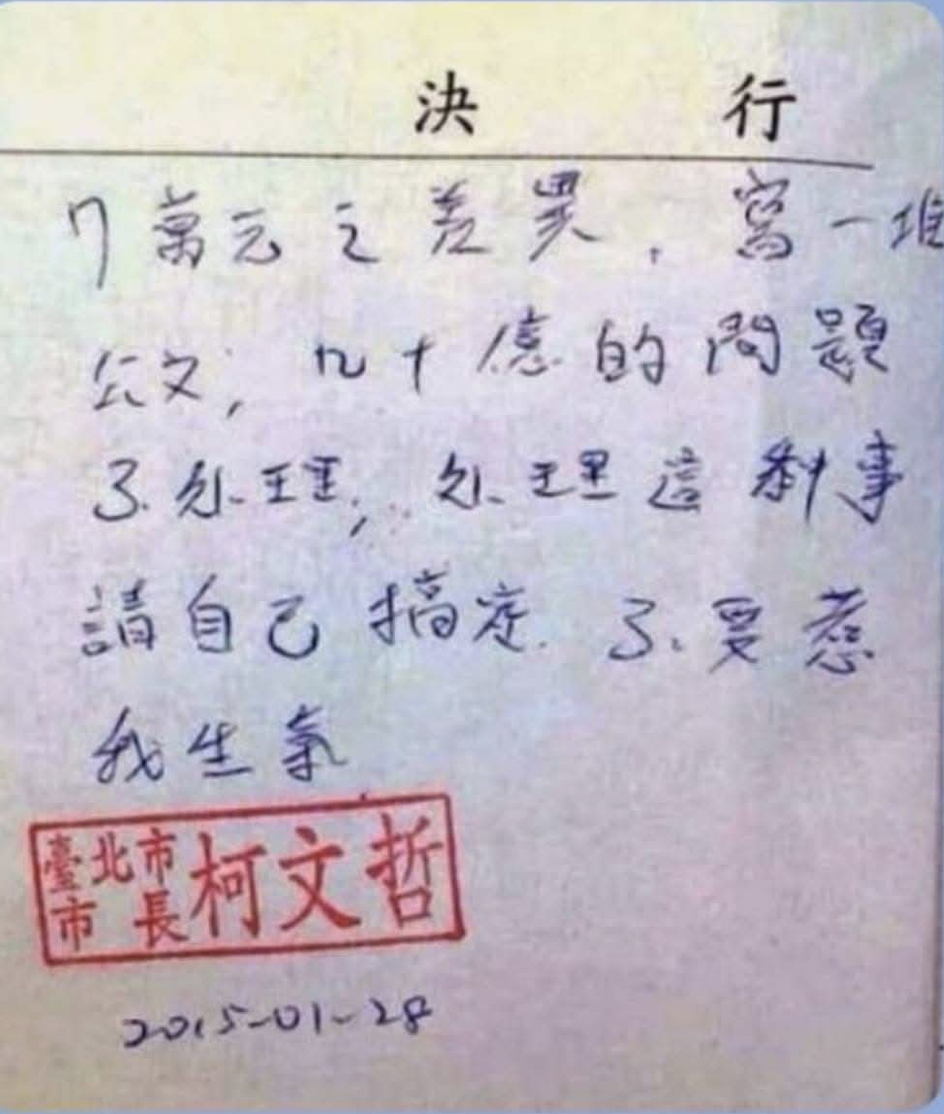 決 行
7萬元之差異,寫一堆
公文,几十億的問題
不処理,処理這剩事
請自己搞定.不要惹
我生氣
臺北市市長柯文哲
2015-01-28